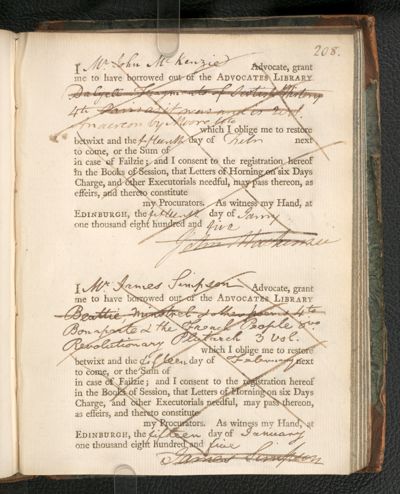 208.
I Mr John McKenzie Advocate, grant
me to have borrowed out of the ADVOCATES LIBRARY
Fragments of
4to
Anacreon by Moore 4to
which I oblige me to restore
betwixt and the fifteenth day of Febry next
to come, or the Sum of
in case of Failzie; and I consent to the registration hereof
in the Books of Session, that Letters of Horning on six Days
Charge, and other Executorials needful, may pass thereon, as
effeirs, and thereto constitute
my Procurators. As witness my Hand, at
EDINBURGH, the fifteenth day of Janry
one thousand eight hundred and five
John
I Mr James Simpson Advocate, grant
me to have borrowed out of the ADVOCATES LIBRARY
Beattie Minstrel & other poems 4to
Bonaparte & the French People 8vo
Revolutionary Plutarch 3 vol.
which I oblige me to restore
betwixt and the fifteen day of February next
to come, or the Sum of
in case of Failzie; and I consent to the registration hereof
in the Books of Session, that Letters of Horning on six Days
Charge, and other Executorials needful, may pass thereon,
as effeirs, and thereto constitute
my Procurators. As witness my Hand, at
EDINBURGH, the fifteen day of January
one thousand eight hundred and five
James Simpson